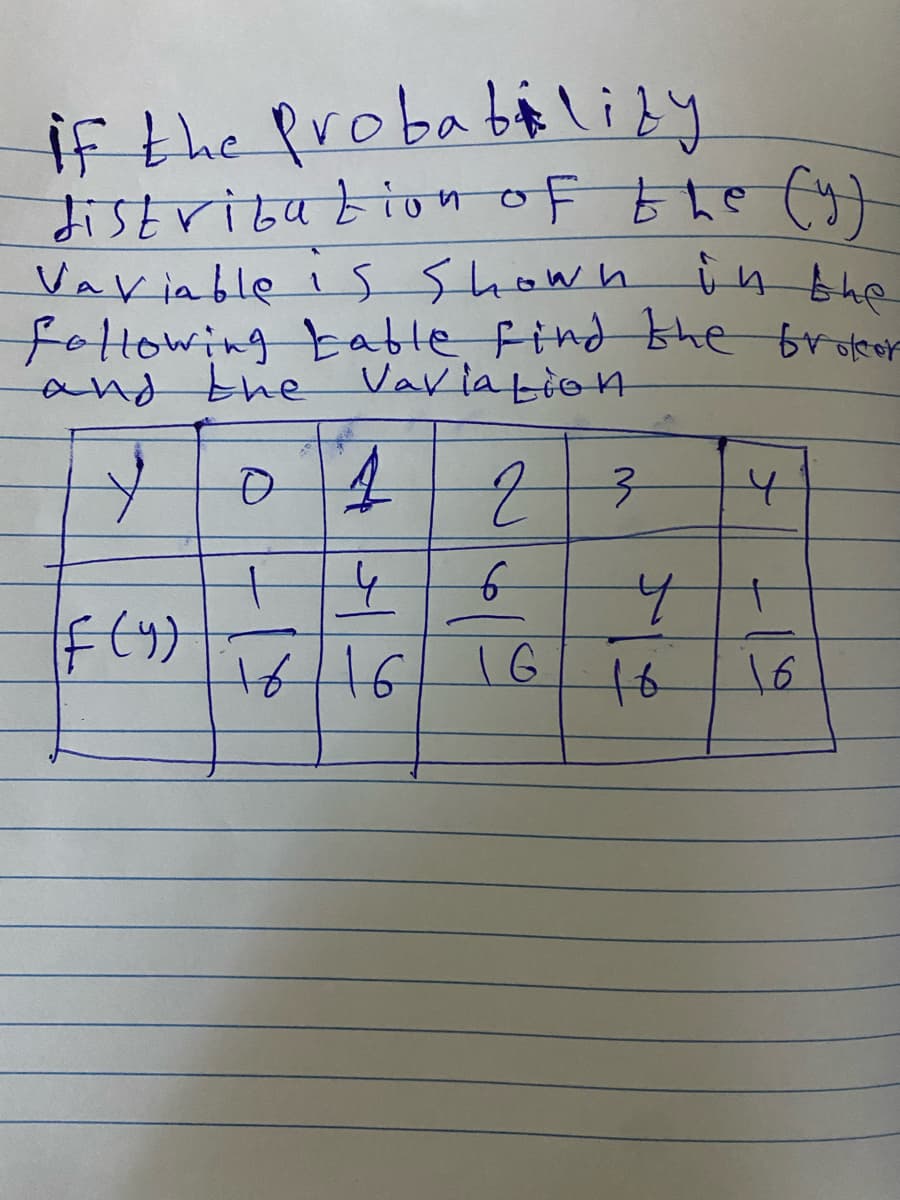 if the probability
distribution of the (y)
Variable is shown in the
following table find the broker
and the variation
y 0 1 2 3 4
f(y) 1/16 4/16 6/16 4/16 1/16